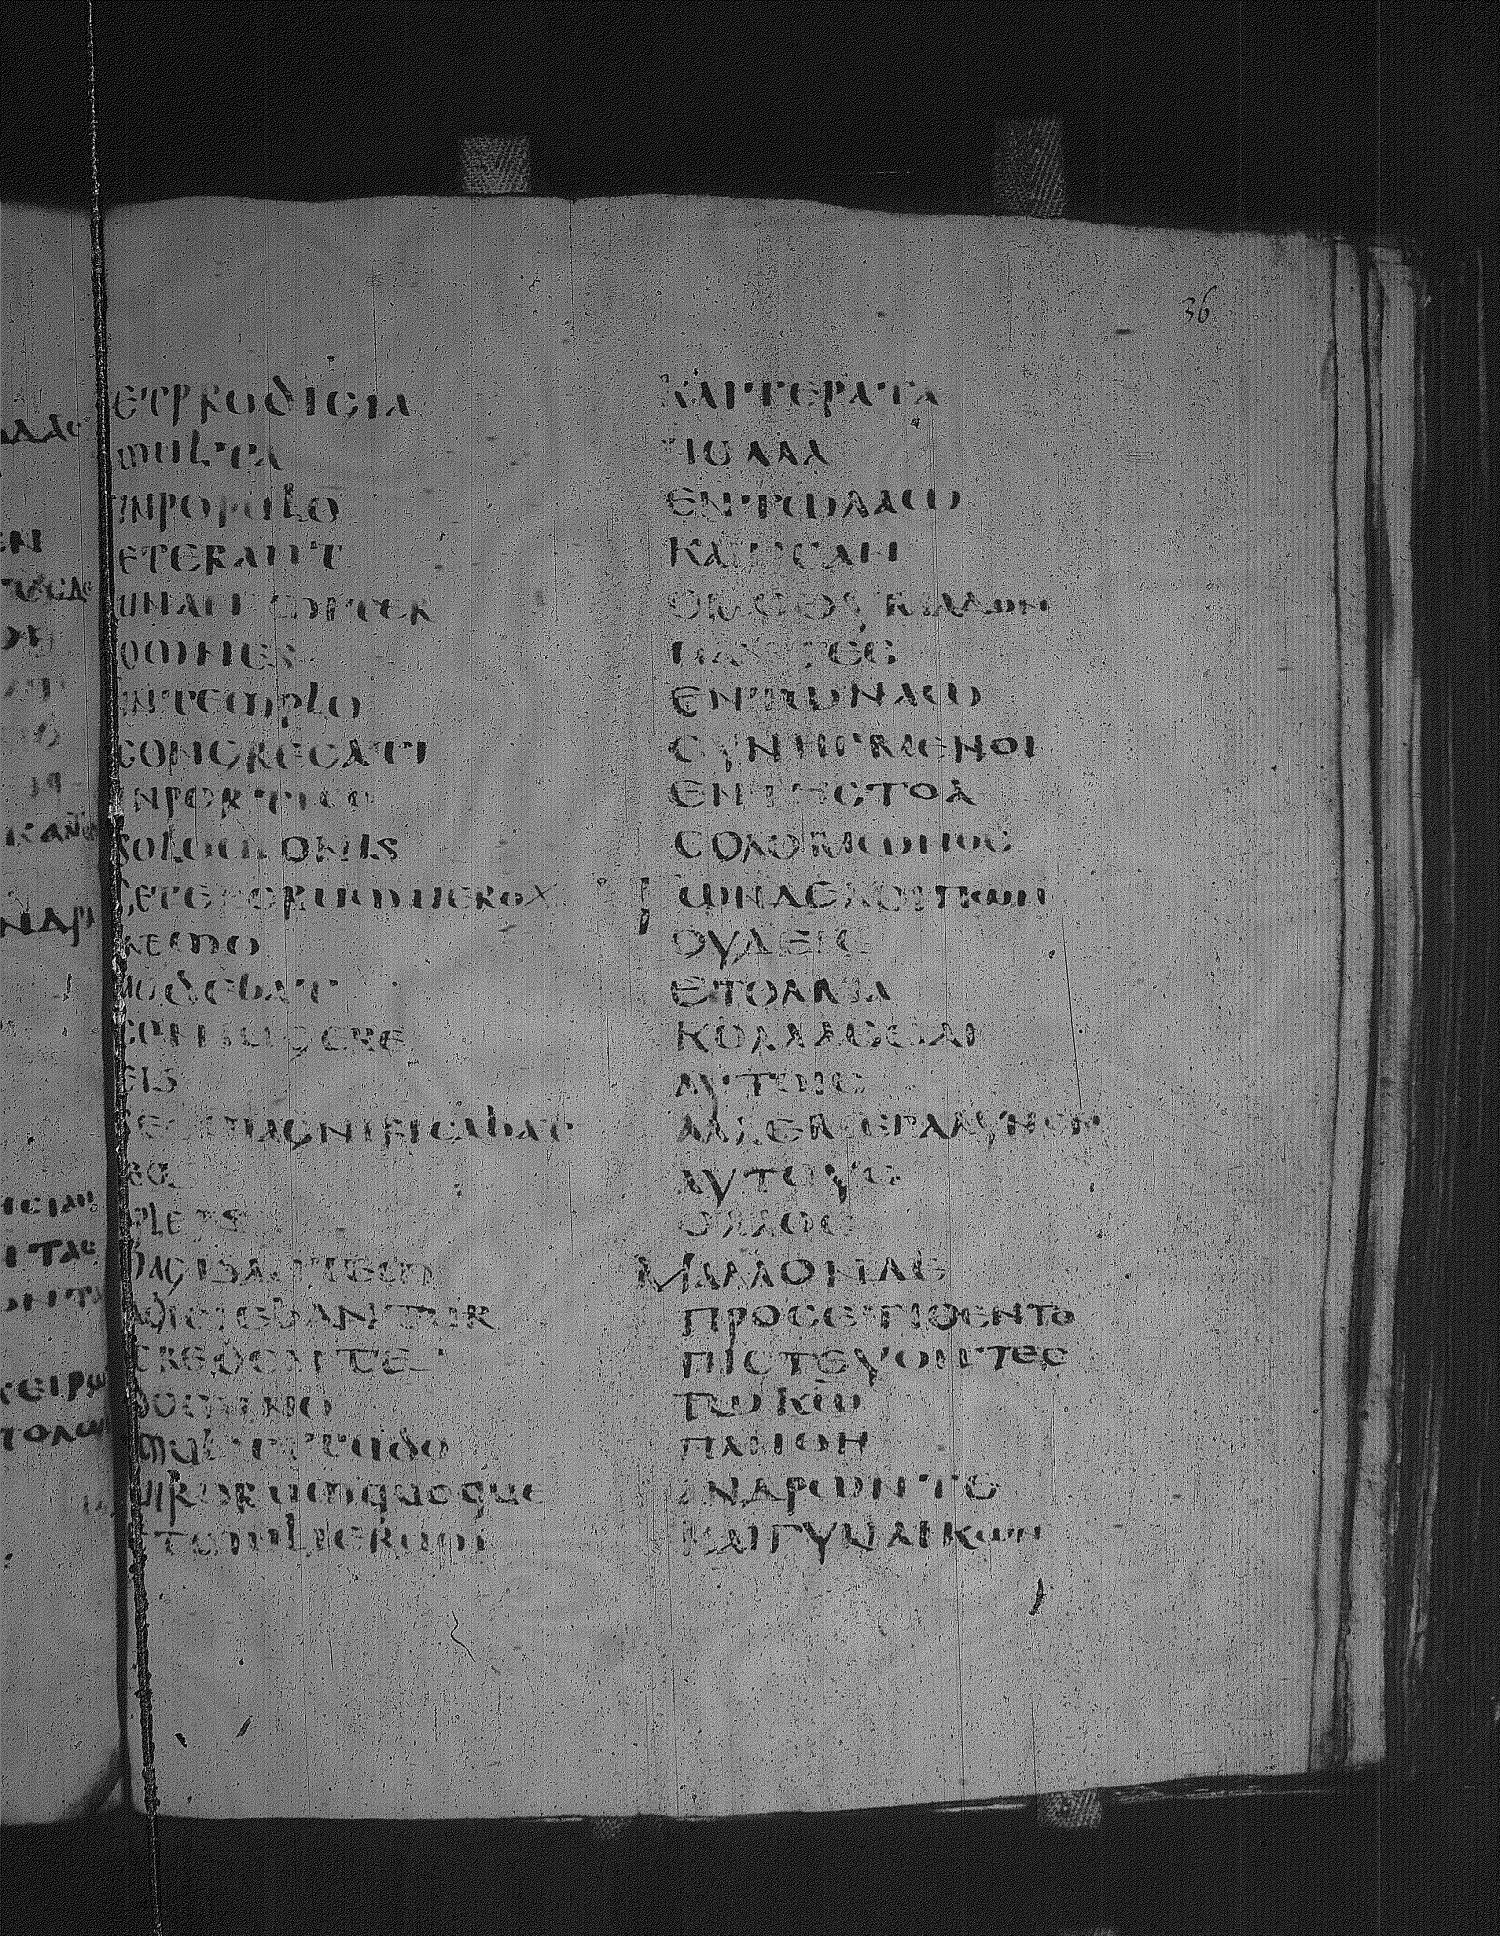 36
ETPRODIGIA
MULTA
INPOPULO
ETERANT
UNANIMITER
OMNES
INTEMPLO
CONGREGATI
INPORTICO
SOLOMONIS
CETERORUMUERO
NEMO
AUDEBAT
CONIUNGERE
EIS
SEDMAGNIFICABAT
EOS
PLEBS
MAGISAUTEM
ADICIEBANTUR
CREDENTES
DOMINO
MULTITUDO
UIRORUMQUOQUE
ETMULIERUM
ΚΑΙΤΕΡΑΤΑ
ΠΟΛΛΑ
ΕΝΤΩΛΑΩ
ΚΑΙΗϹΑΝ
ΟΜΟΘΥΜΑΔΟΝ
ΠΑΝΤΕϹ
ΕΝΤΩΝΑΩ
ϹΥΝΗΓΜΕΝΟΙ
ΕΝΤΗϹΤΟΑ
ϹΟΛΟΜΩΝΟϹ
ΤΩΝΔΕΛΟΙΠΩΝ
ΟΥΔΕΙϹ
ΕΤΟΛΜΑ
ΚΟΛΛΑϹΘΑΙ
ΑΥΤΟΙϹ
ΑΛΛΕΜΕΓΑΛΥΝΕΝ
ΑΥΤΟΥϹ
ΟΛΑΟϹ
ΜΑΛΛΟΝΔΕ
ΠΡΟϹΕΤΙΘΕΝΤΟ
ΠΙϹΤΕΥΟΝΤΕϹ
ΤΩΚΩ̅
ΠΛΗΘΗ
ΑΝΔΡΩΝΤΕ
ΚΑΙΓΥΝΑΙΚΩΝ